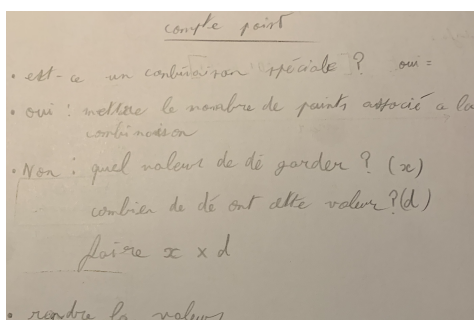 compte point
• est-ce un combinaison spéciale ? oui =
• oui : mettre le nombre de points associé a la
combinaison
• Non : quel valeurs de dé garder ? (x)
combien de dé ont cette valeur ? (d)
faire x x d
• rendre la valeur